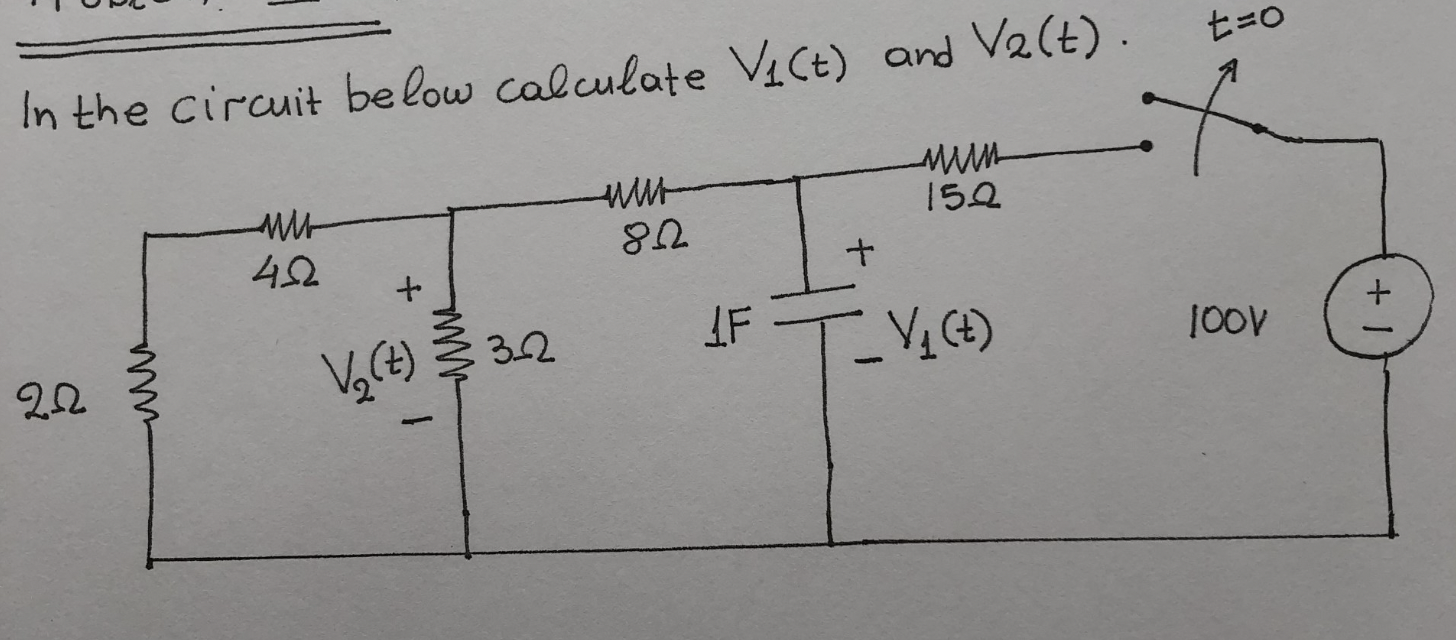 In the circuit below calculate V1(t) and V2(t).
t=0
15Ω
8Ω
4Ω
+
+
+
1F
100V
V2(t)
3Ω
- V1(t)
-
2Ω
-